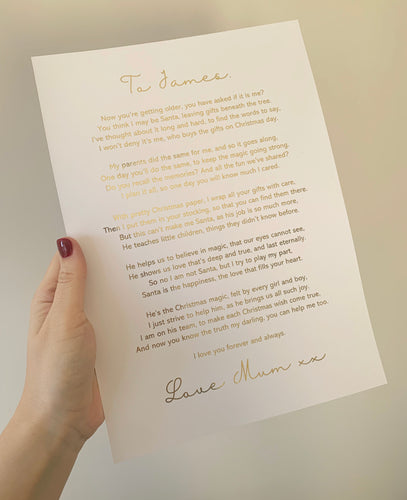 To James,
Now you're getting older, you have asked if it is me?
You think I may be Santa, leaving gifts beneath the tree.
I've thought about it long and hard, to find the words to say,
I won't deny it's me, who buys the gifts on Christmas day.
My parents did the same for me, and so it goes along,
One day you'll do the same, to keep the magic going strong.
Do you recall the memories? And all the fun we've shared?
I plan it all, so one day you will know much I cared.
With pretty Christmas paper, I wrap all your gifts with care,
Then I put them in your stocking, so that you can find them there.
But this can't make me Santa, as his job is so much more,
He teaches little children, things they didn't know before.
He helps us to believe in magic, that our eyes cannot see,
He shows us love that's deep and true, and last eternally.
So no I am not Santa, but I try to play my part,
Santa is the happiness, the love that fills your heart.
He's the Christmas magic, felt by every girl and boy,
I just strive to help him, as he brings us all such joy.
I am on his team, to make each Christmas wish come true,
And now you know the truth my darling, you can help me too.
I love you forever and always.
Love Mum xx